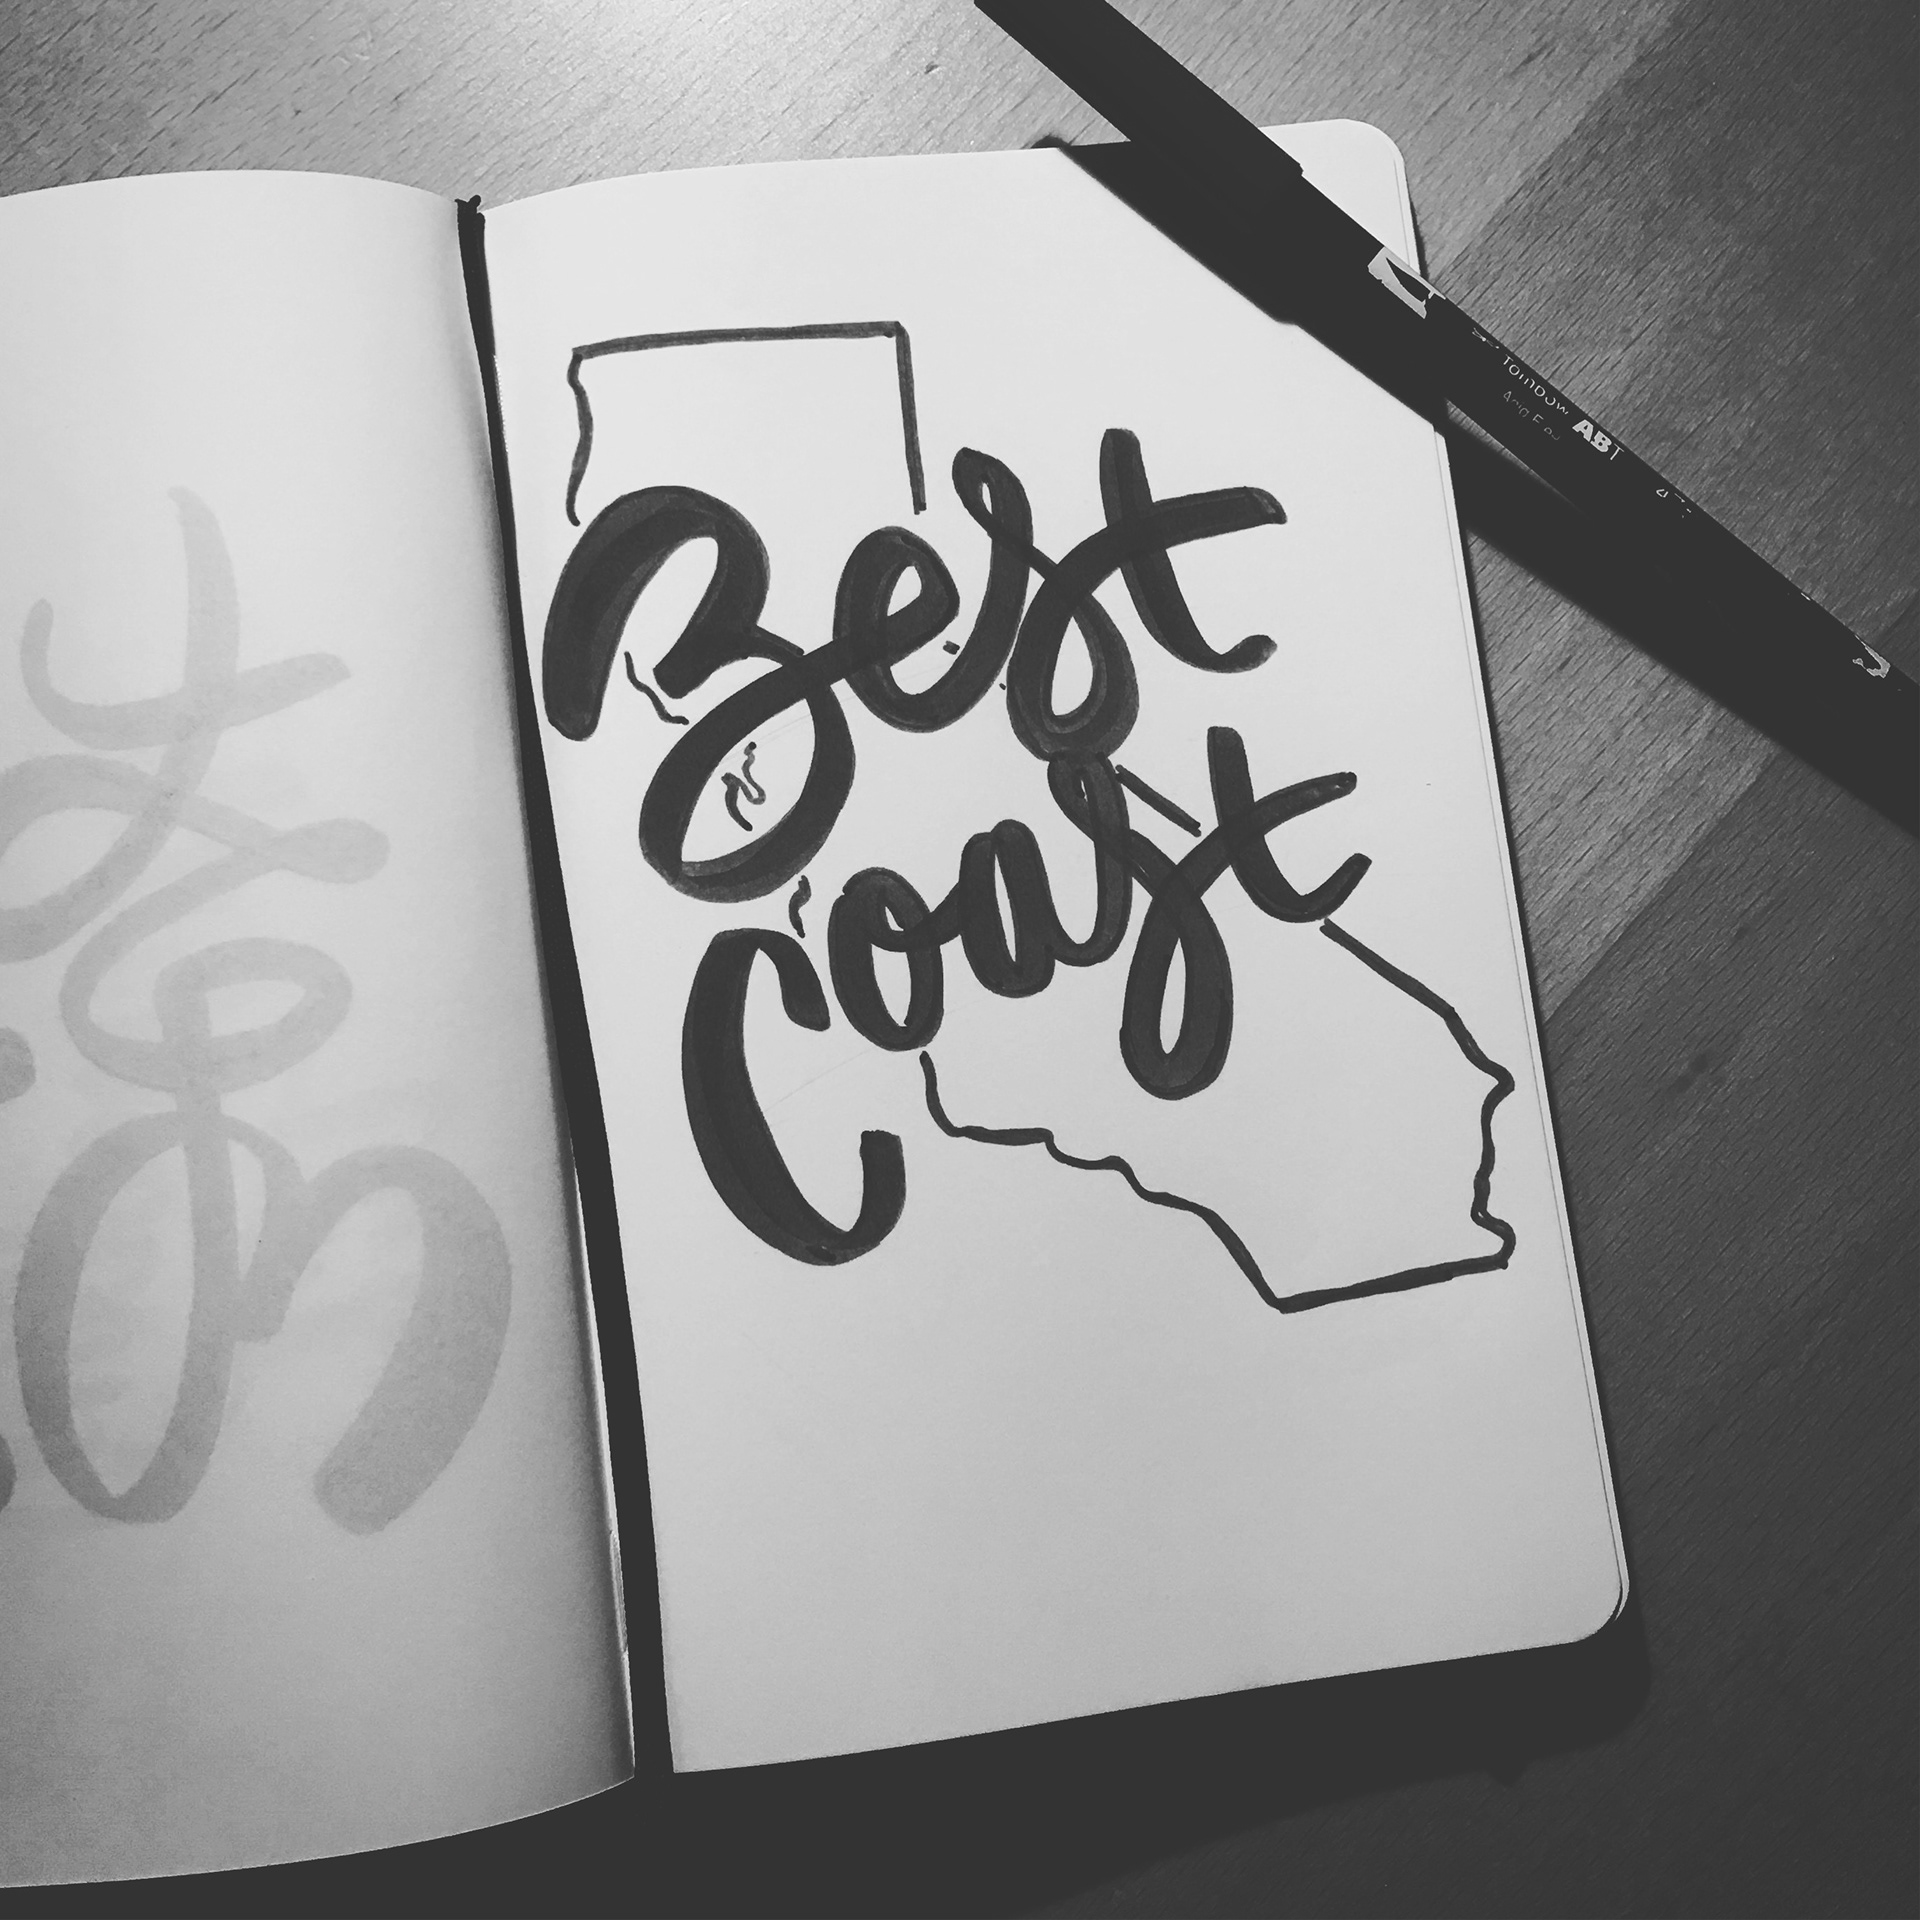 Best
Coast
Tombow ABT